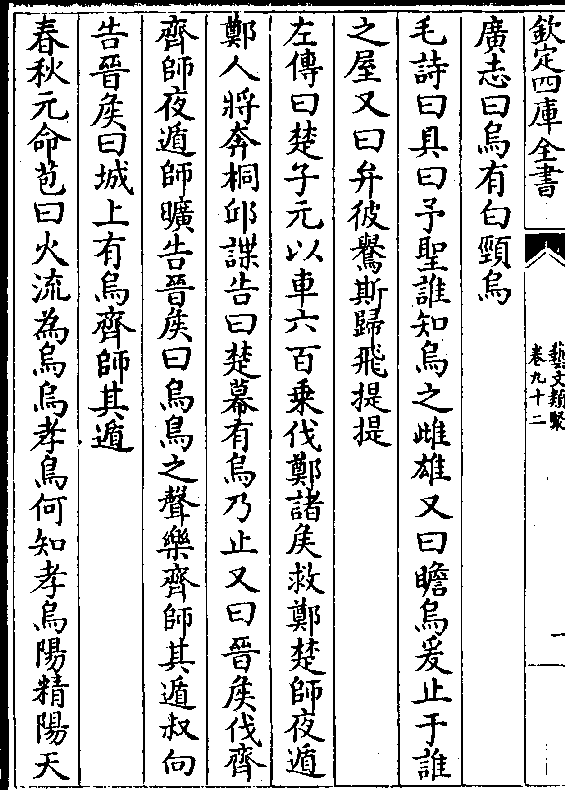 欽定四庫全書
藝文類聚
卷九十二
一
廣志曰烏有白頸烏
毛詩曰具曰予聖誰知烏之雌雄又曰瞻烏爰止于誰
之屋又曰弁彼鸒斯歸飛提提
左傳曰楚子元以車六百乘伐鄭諸矦救鄭楚師夜遁
鄭人將奔桐邱諜告曰楚幕有烏乃止又曰晉矦伐齊
齊師夜遁師曠告晉矦曰烏烏之聲樂齊師其遁叔向
告晉矦曰城上有烏齊師其遁
春秋元命苞曰火流為烏烏孝鳥何知孝烏陽精陽天